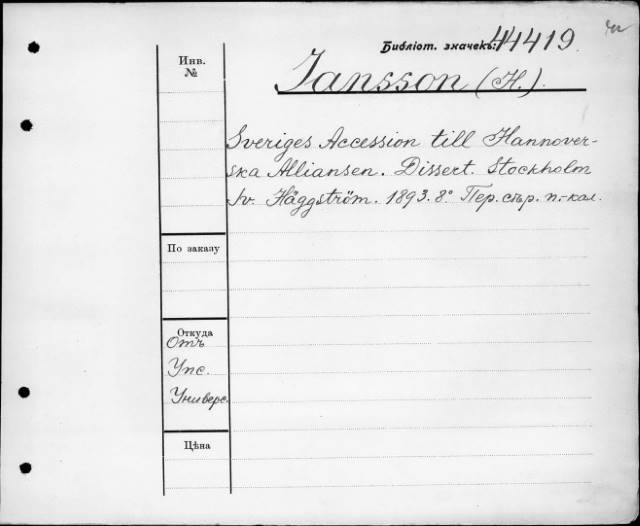 Библіот. значекъ: 41419
Инв.
№
Jansson (H.).
Sveriges Accession till Hannover-
ska Alliansen. Dissert. Stockholm
Iv. Häggström. 1893. 8° Пер. стр. п.-кал.
По заказу
Откуда
Отъ
Упс.
Универс.
Цѣна